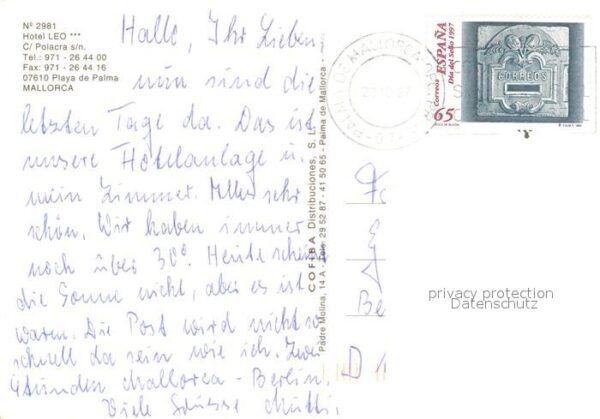 Nº 2981
Hotel LEO ***
C/ Polacra s/n.
Tel.: 971 - 26 44 00
Fax: 971 - 26 44 16
07610 Playa de Palma
MALLORCA
Hallo, Ihr Lieben,
nun sind die
letzten Tage da. Das ist
unsere Hotelanlage u.
mein Zimmer. Alles sehr
schön. Wir haben immer
noch über 30°. Heute scheint
die Sonne nicht, aber es ist
warm. Die Post wird nicht so
schnell da sein wie ich. Zwei
Stunden Mallorca - Berlin.
Viele Grüsse Mutti.
COFIBA Distribuciones, S. L.
Padre Molina, 14 A - Tels: 29 52 87 - 41 50 65 - Palma de Mallorca -
PALMA DE MALLORCA
Correos ESPAÑA
Día del Sello 1997
65
CORREOS
Be
D
privacy protection
Datenschutz